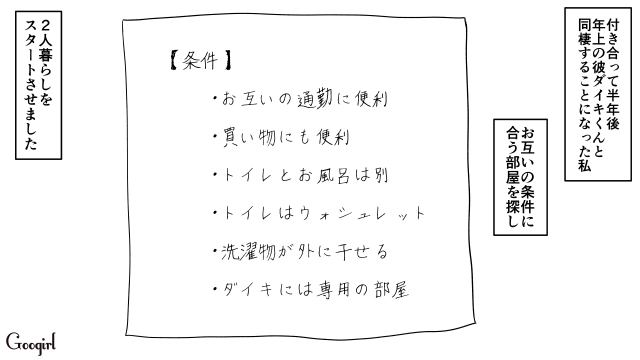 付き合って半年後
年上の彼ダイキくんと
同棲することになった私
お互いの条件に
合う部屋を探し
【条件】
・お互いの通勤に便利
・買い物にも便利
・トイレとお風呂は別
・トイレはウォシュレット
・洗濯物が外に干せる
・ダイキには専用の部屋
2人暮らしを
スタートさせました
Googirl